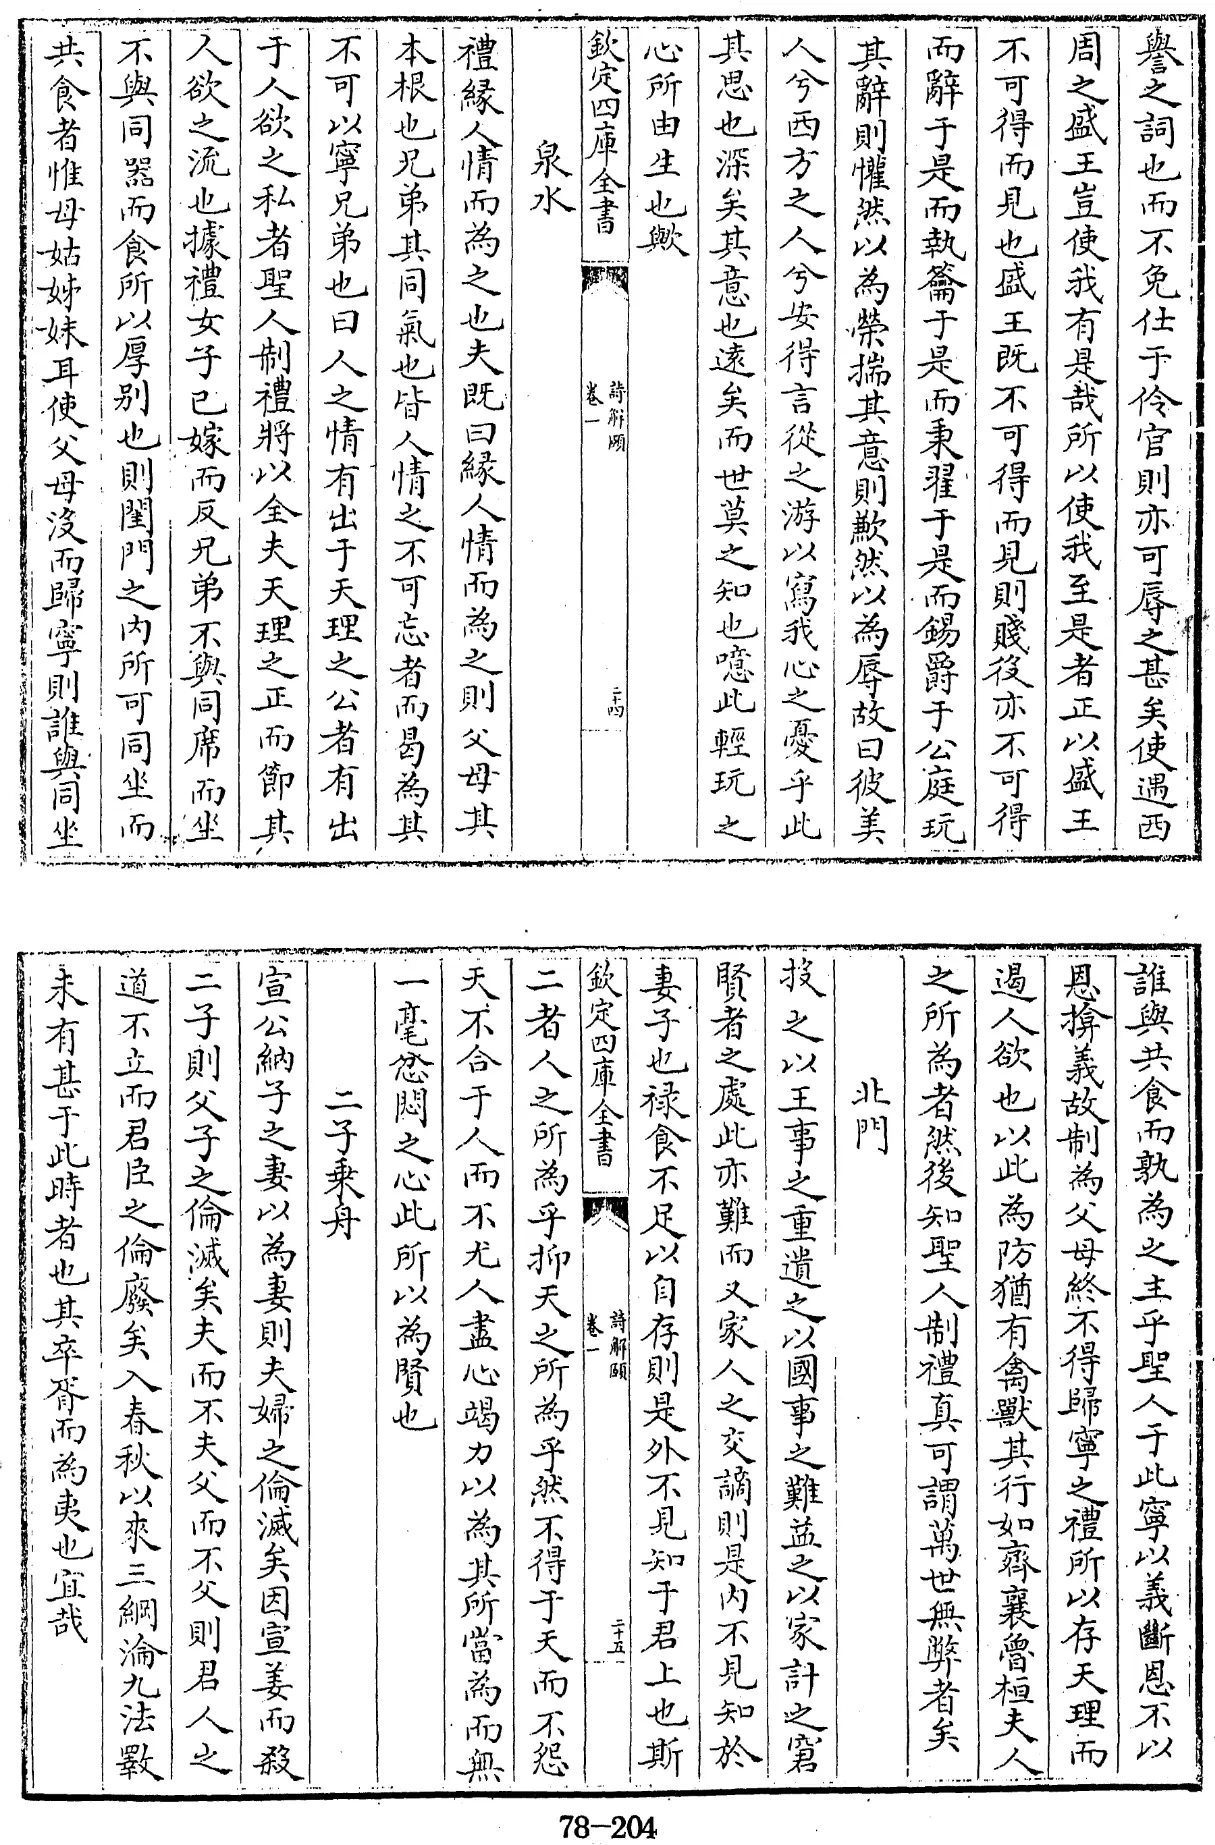 譽之詞也而不免仕于伶官則亦可辱之甚矣使遇西
周之盛王豈使我有是哉所以使我至是者正以盛王
不可得而見也盛王既不可得而見則賤役亦不可得
而辭于是而執籥于是而秉翟于是而錫爵于公庭玩
其辭則懽然以為榮揣其意則歉然以為辱故曰彼美
人兮西方之人兮安得言從之游以寫我心之憂乎此
其思也深矣其意也遠矣而世莫之知也噫此輕玩之
心所由生也歟
欽定四庫全書
詩解頤
卷一
二十四
泉水
禮緣人情而為之也夫既曰緣人情而為之則父母其
本根也兄弟其同氣也皆人情之不可忘者而曷為其
不可以寧兄弟也曰人之情有出于天理之公者有出
于人欲之私者聖人制禮將以全夫天理之正而節其
人欲之流也據禮女子已嫁而反兄弟不與同席而坐
不與同器而食所以厚别也則閨門之内所可同坐而
共食者惟母姑姊妹耳使父母沒而歸寧則誰與同坐
誰與共食而孰為之主乎聖人于此寧以義斷恩不以
恩揜義故制為父母終不得歸寧之禮所以存天理而
遏人欲也以此為防猶有禽獸其行如齊襄魯桓夫人
之所為者然後知聖人制禮真可謂萬世無弊者矣
北門
投之以王事之重遺之以國事之難益之以家計之窘
賢者之處此亦難而又家人之交謫則是内不見知於
妻子也禄食不足以自存則是外不見知于君上也斯
欽定四庫全書
詩解頤
卷一
二十五
二者人之所為乎抑天之所為乎然不得于天而不怨
天不合于人而不尤人盡心竭力以為其所當為而無
一毫忿懟之心此所以為賢也
二子乘舟
宣公納子之妻以為妻則夫婦之倫滅矣因宣姜而殺
二子則父子之倫滅矣夫而不夫父而不父則君人之
道不立而君臣之倫廢矣入春秋以來三綱淪九法斁
未有甚于此時者也其卒胥而為夷也宜哉
78-204